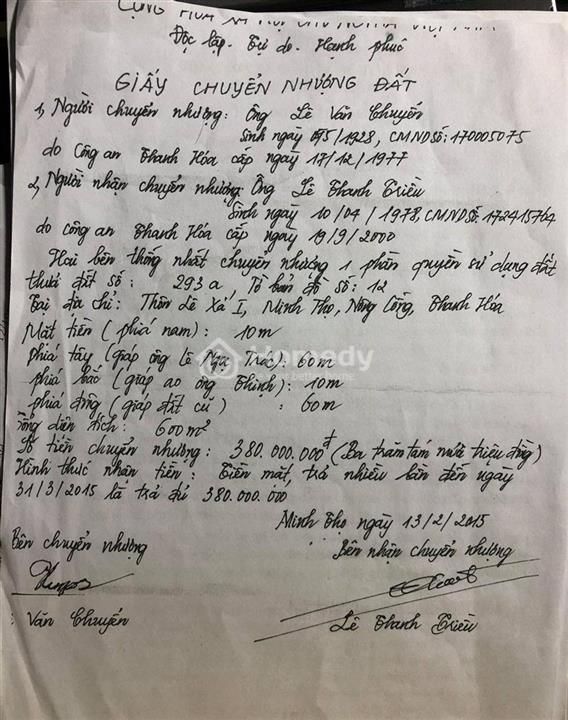 CỘNG HÒA XÃ HỘI CHỦ NGHĨA VIỆT NAM
Độc lập - Tự do - Hạnh phúc
GIẤY CHUYỂN NHƯỢNG ĐẤT
1, Người chuyển nhượng: Ông Lê Văn Chuyển
Sinh ngày 05/1928, CMND số: 170005075
do Công an Thanh Hóa cấp ngày 17/12/1977
2, Người nhận chuyển nhượng: Ông Lê Thanh Triều
Sinh ngày 10/04/1978, CMND số: 172415764
do công an Thanh Hóa cấp ngày 19/9/2000
Hai bên thống nhất chuyển nhượng 1 phần quyền sử dụng đất
thửa đất số: 293a, Tờ bản đồ số: 12
Tại địa chỉ: Thôn Lê Xá I, Minh Thọ, Nông Cống, Thanh Hóa
Mặt tiền (phía nam): 10m
phía tây (giáp ông Lê Ngọ Trác): 60m
phía bắc (giáp ao ông Thịnh): 10m
phía đông (giáp đất cũ): 60m
Tổng diện tích: 600m²
Số tiền chuyển nhượng: 380.000.000đ (Ba trăm tám mươi triệu đồng)
Hình thức nhận tiền: Tiền mặt, trả nhiều lần đến ngày
31/3/2015 là trả đủ 380.000.000
Minh Thọ ngày 13/2/2015
Bên chuyển nhượng
Bên nhận chuyển nhượng
Văn Chuyển
Lê Thanh Triều
Homedy